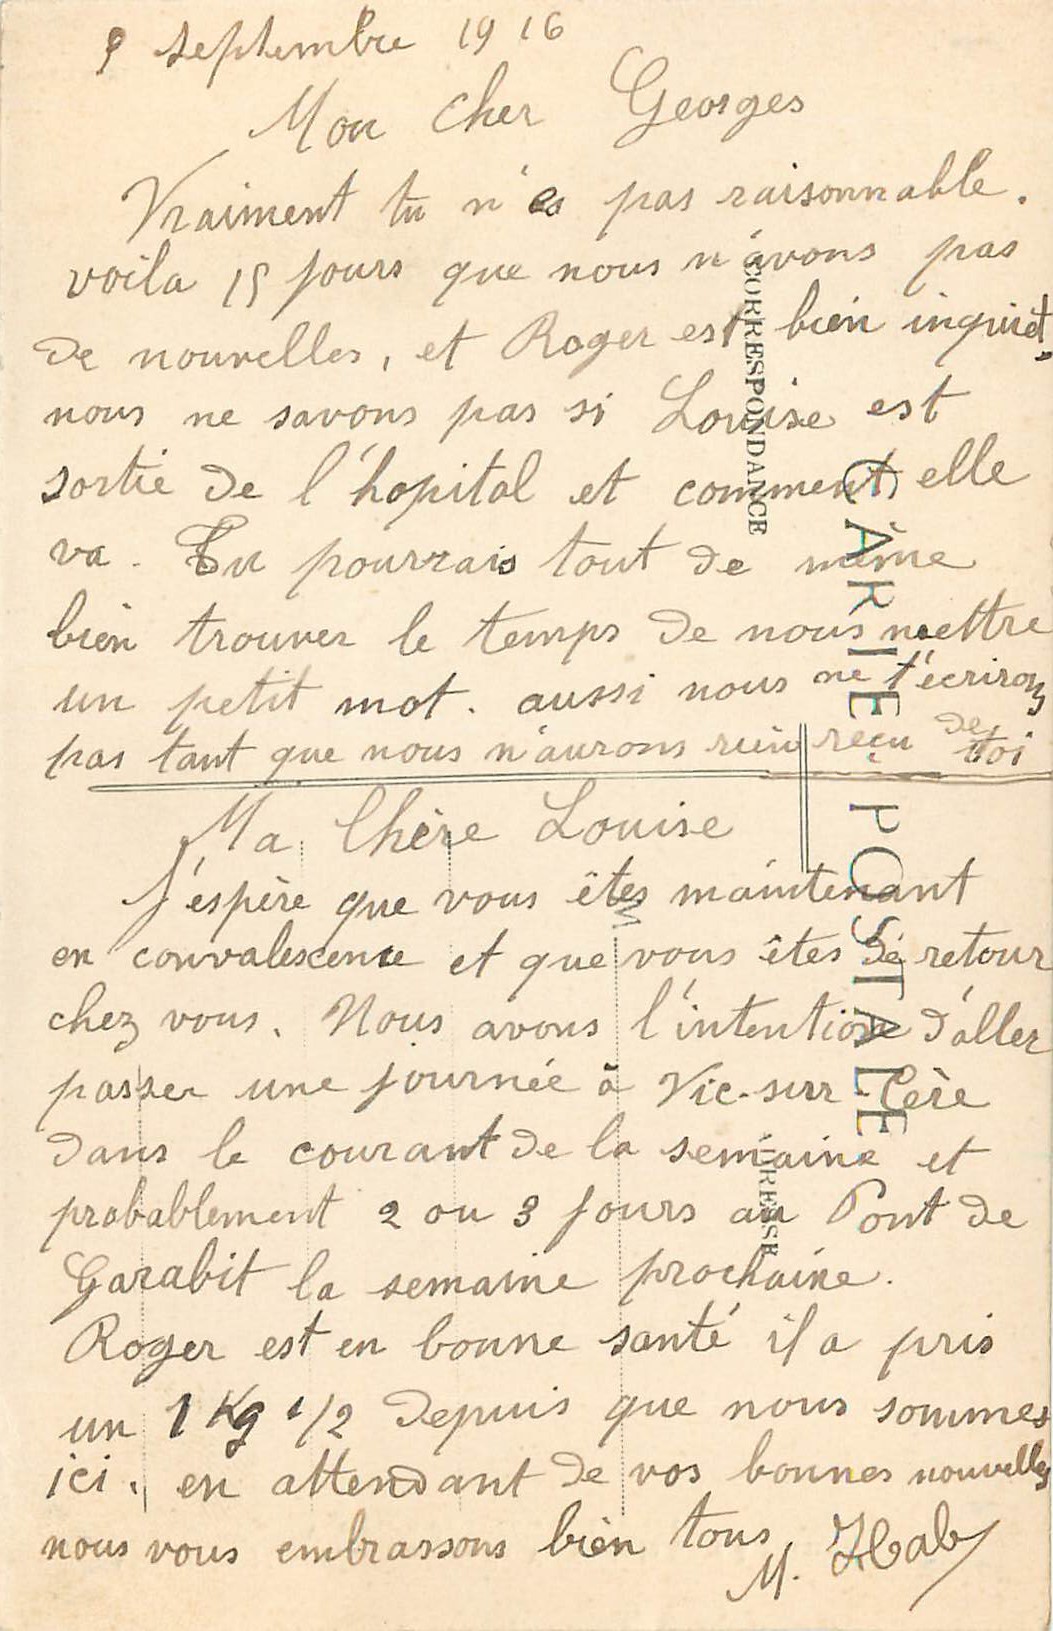 9 septembre 1916
Mon cher Georges
Vraiment tu n'es pas raisonnable.
voila 15 jours que nous n'avons pas
de nouvelles, et Roger est bien inquiet,
nous ne savons pas si Louise est
sortie de l'hopital et comment elle
va. Tu pourrais tout de même
bien trouver le temps de nous mettre
un petit mot. aussi nous ne t'écrirons
pas tant que nous n'aurons rien reçu de toi
Ma Chère Louise
J'espère que vous êtes maintenant
en convalescence et que vous êtes de retour
chez vous. Nous avons l'intention d'aller
passer une journée à Vic-sur-Cère
dans le courant de la semaine et
probablement 2 ou 3 jours au Pont de
Garabit la semaine prochaine.
Roger est en bonne santé il a pris
un 1 Kg 1/2 depuis que nous sommes
ici. en attendant de vos bonnes nouvelles
nous vous embrassons bien tous
M.
CORRESPONDANCE
CARTE POSTALE